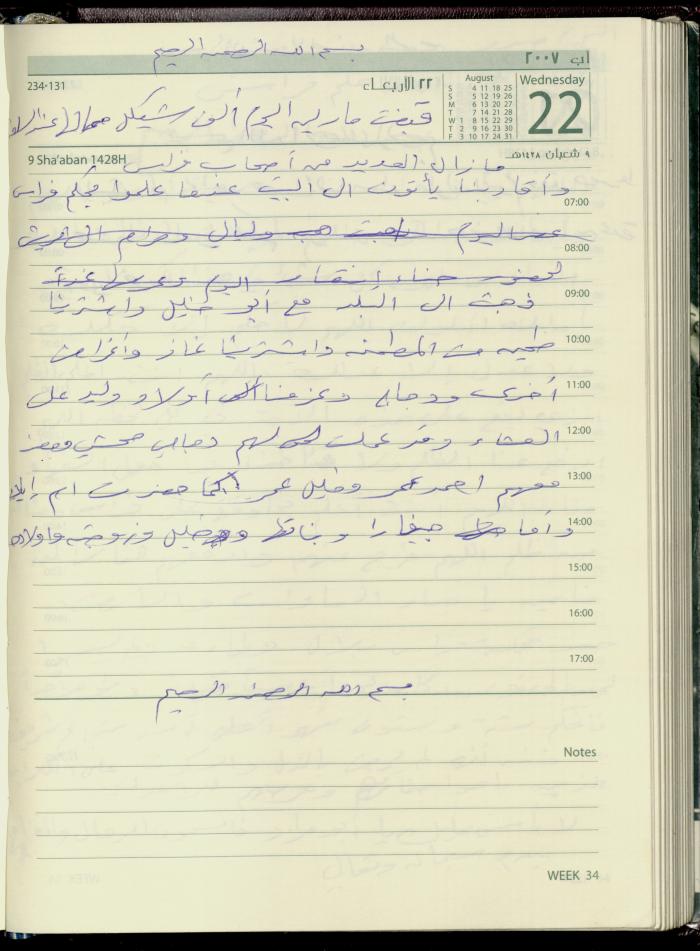 بسم الله الرحمن الرحيم
آب ٢٠٠٧
234-131
٢٢ الأربعاء
August
Wednesday
22
S 4 11 18 25
S 5 12 19 26
M 6 13 20 27
T 7 14 21 28
W 1 8 15 22 29
T 2 9 16 23 30
F 3 10 17 24 31
قبضت اليوم ألف شيكل
9 Sha'aban 1428H
٩ شعبان ١٤٢٨هـ
مازال العديد من أصحاب فراس
وأقاربنا يأتون الى البيت عندما علموا بحكم فراس
07:00
عصر اليوم ذهبت هبه وليالي ومرام الى
08:00
لحضور حناء انتصار اليوم وعرسها غداً
09:00
ذهبت الى البلد مع أبو خليل واشترينا
10:00
من المطحنه واشترينا غاز وأغراض
11:00
أخرى ودجاج وعزمنا أولاد وليد على
12:00
العشاء وقد عملت لهم دجاج محشي وحضر
13:00
معهم احمد عمر وخليل عمر كما حضرت ام رايد
14:00
وبناتها وخليل وزوجته واولاده
15:00
16:00
17:00
بسم الله الرحمن الرحيم
Notes
WEEK 34